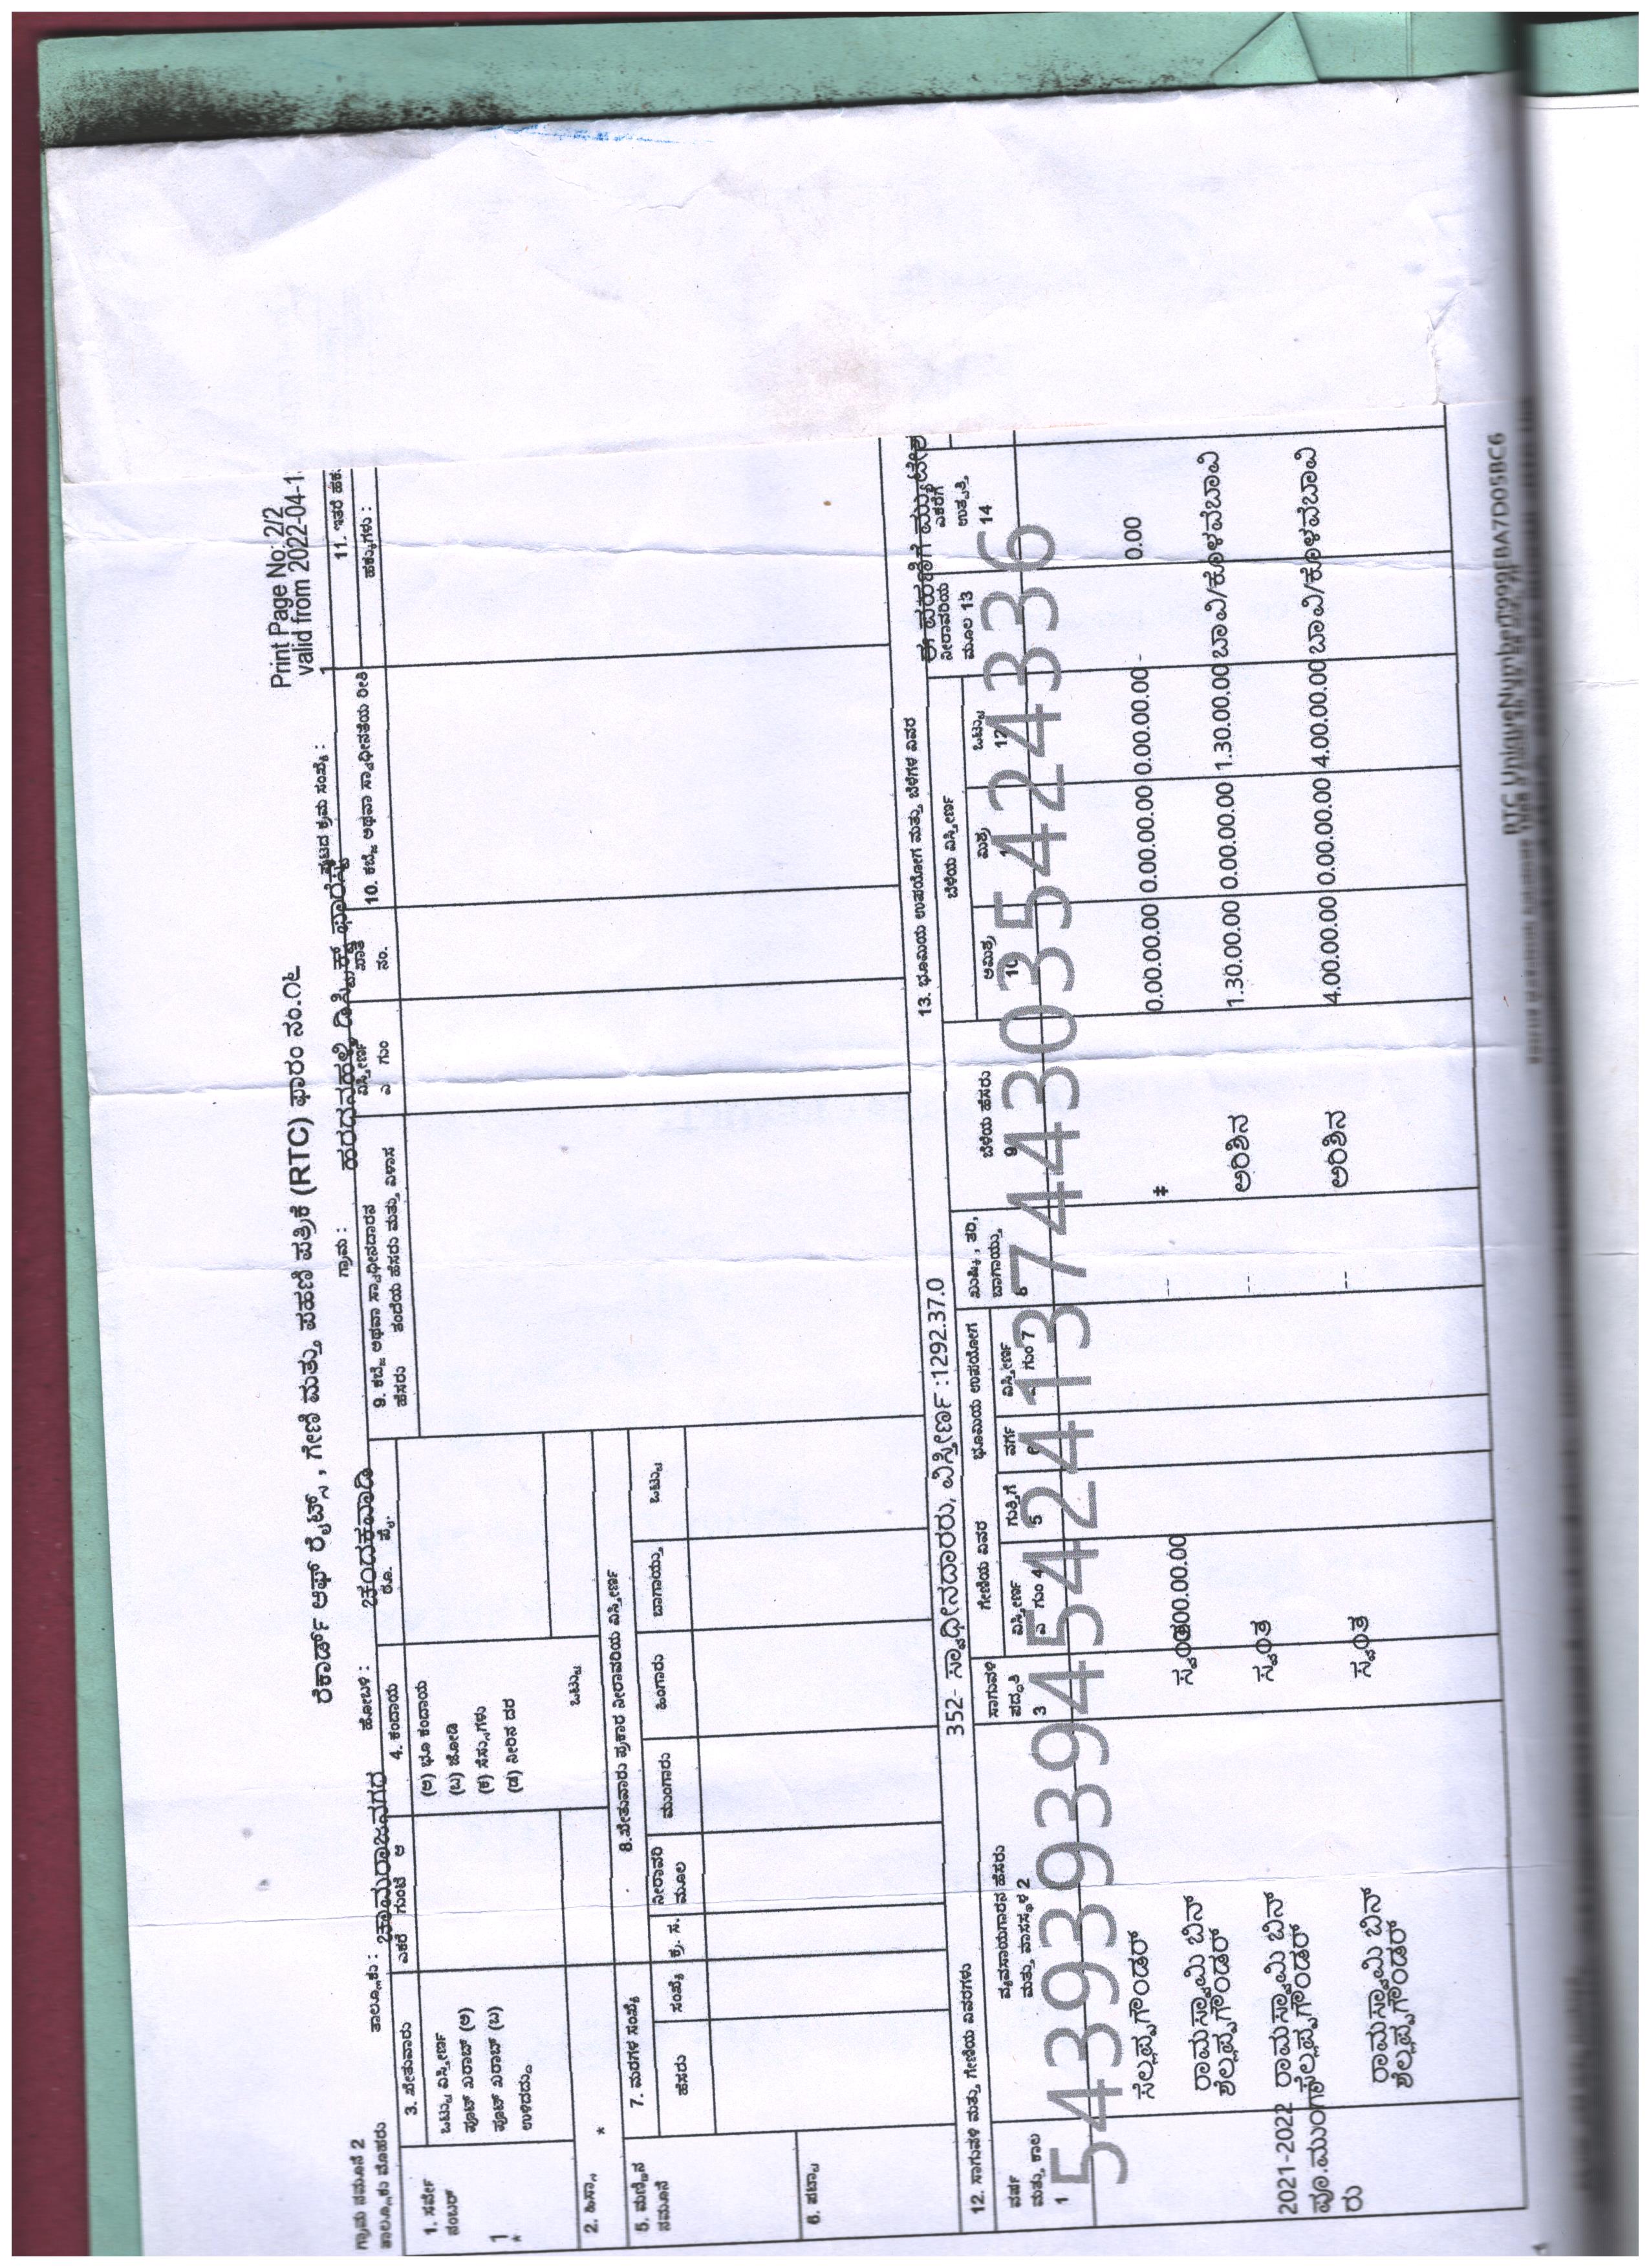 Print Page No: 2/2
valid from 2022-04-1
ರೆಕಾರ್ಡ್ ಆಫ್ ರೈಟ್ಸ್ , ಗೇಣಿ ಮತ್ತು ಪಹಣಿ ಪತ್ರಿಕೆ (RTC) ಫಾರಂ ನಂ.೧೬
ಗ್ರಾಮ ನಮೂನೆ 2
ತಾಲ್ಲೂಕು : ಚಾಮರಾಜನಗರ ಹೋಬಳಿ : ಚಂದಕವಾಡಿ ಗ್ರಾಮ : ಹರದನಹಳ್ಳಿ ಡಿಸ್ಟ್ರಿಕ್ಟ್ ಫಾರೆಸ್ಟ್ ಪುಟದ ಕ್ರಮ ಸಂಖ್ಯೆ : 1
ತಾಲ್ಲೂಕು ಮೊಹರು
1. ಸರ್ವೇ ನಂಬರ್
1
*
2. ಹಿಸ್ಸಾ
*
3. ಖೇತುವಾರು ಎಕರೆ ಗುಂಟೆ ಆ
ಒಟ್ಟು ವಿಸ್ತೀರ್ಣ
ಪೂಟ್ ಖರಾಬ್ (ಅ)
ಪೂಟ್ ಖರಾಬ್ (ಬ)
ಉಳಿದದ್ದು
4. ಕಂದಾಯ ರೂ. ಪೈ.
(ಅ) ಭೂ ಕಂದಾಯ
(ಬ) ಜೋಡಿ
(ಕ) ಸೆಸ್ಸುಗಳು
(ಡ) ನೀರಿನ ದರ
ಒಟ್ಟು
5. ಮಣ್ಣಿನ ನಮೂನೆ
6. ಪಟ್ಟಾ
7. ಮರಗಳ ಸಂಖ್ಯೆ
ಹೆಸರು ಸಂಖ್ಯೆ
8.ಖೇತುವಾರು ಪ್ರಕಾರ ನೀರಾವರಿಯ ವಿಸ್ತೀರ್ಣ
ಕ್ರ. ಸ. ನೀರಾವರಿ ಮೂಲ ಮುಂಗಾರು ಹಿಂಗಾರು ಬಾಗಾಯ್ತು ಒಟ್ಟು
9. ಕಬ್ಜೆ ಅಥವಾ ಸ್ವಾಧೀನದಾರನ
ಹೆಸರು ತಂದೆಯ ಹೆಸರು ಮತ್ತು ವಿಳಾಸ
ವಿಸ್ತೀರ್ಣ
ಎ ಗುಂ
ಖಾತೆ
ನಂ.
10. ಕಬ್ಜೆ ಅಥವಾ ಸ್ವಾಧೀನತೆಯ ರೀತಿ
11. ಇತರೆ ಹಕ್ಕು
ಹಕ್ಕುಗಳು :
352- ಸ್ವಾಧೀನದಾರರು, ವಿಸ್ತೀರ್ಣ :1292.37.0
ಈ ಪಹಣಿಗೆ ಮ್ಯುಟೇಶ
12. ಸಾಗುವಳಿ ಮತ್ತು ಗೇಣಿಯ ವಿವರಗಳು
13. ಭೂಮಿಯ ಉಪಯೋಗ ಮತ್ತು ಬೆಳೆಗಳ ವಿವರ
ಗೇಣಿಯ ವಿವರ ಭೂಮಿಯ ಉಪಯೋಗ ಬೆಳೆಯ ವಿಸ್ತೀರ್ಣ
ವರ್ಷ ಮತ್ತು ಕಾಲ 1
ವ್ಯವಸಾಯಗಾರನ ಹೆಸರು ಮತ್ತು ವಾಸಸ್ಥಳ 2
ಸಾಗುವಳಿ ಪದ್ಧತಿ 3
ವಿಸ್ತೀರ್ಣ ಎ ಗುಂ 4
ಗುತ್ತಿಗೆ 5
ವರ್ಗ 6
ವಿಸ್ತೀರ್ಣ ಗುಂ 7
ಖುಷ್ಕಿ, ತರಿ, ಬಾಗಾಯ್ತು 8
ಬೆಳೆಯ ಹೆಸರು 9
ಅಮಿಶ್ರ 10
ಮಿಶ್ರ
ಒಟ್ಟು 12
ನೀರಾವರಿಯ ಮೂಲ 13
ಎಕರೆಗೆ ಉತ್ಪತ್ತಿ 14
543939394542413744303542424336
ಸೆಲ್ಲಪ್ಪಗೌಂಡರ್ ಸ್ವಂತ 00.00.00 -- # 0.00.00.00 0.00.00.00 0.00.00.00 - 0.00
ರಾಮಸ್ವಾಮಿ ಬಿನ್ ಸ್ವಂತ -- ಅರಿಶಿನ 1.30.00.00 0.00.00.00 1.30.00.00 ಬಾವಿ/ಕೊಳವೆಬಾವಿ
ಶೆಲ್ಲಪ್ಪಗೌಂಡರ್
2021-2022 ರಾಮಸ್ವಾಮಿ ಬಿನ್
ಪೂ.ಮುಂಗಾ ಸೆಲ್ಲಪ್ಪಗೌಂಡರ್
ರು
ರಾಮಸ್ವಾಮಿ ಬಿನ್ ಸ್ವಂತ -- ಅರಿಶಿನ 4.00.00.00 0.00.00.00 4.00.00.00 ಬಾವಿ/ಕೊಳವೆಬಾವಿ
ಶೆಲ್ಲಪ್ಪಗೌಂಡರ್